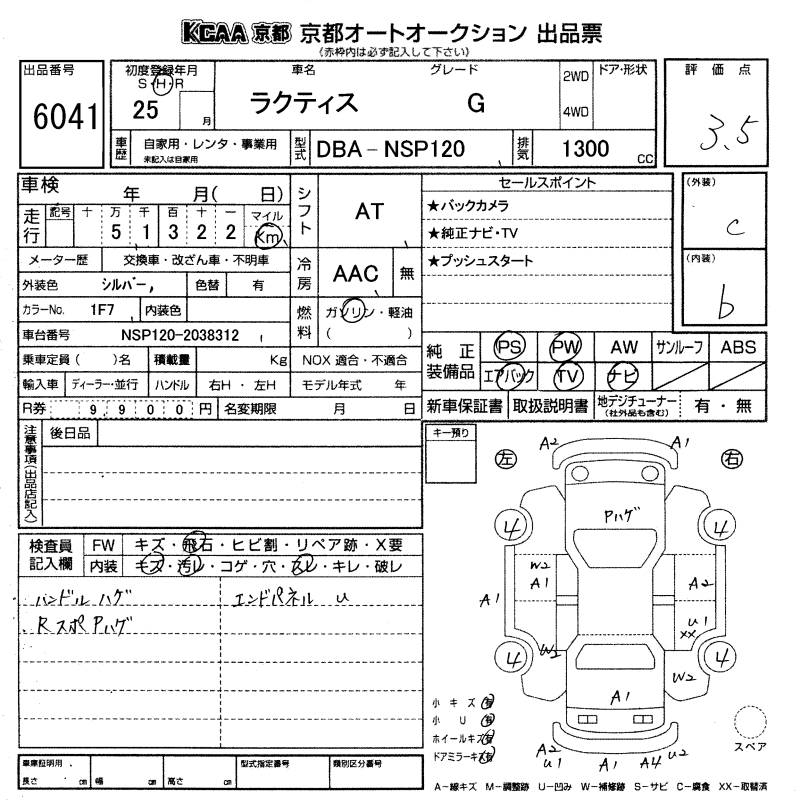 KCAA 京都 京都オートオークション 出品票
(赤枠内は必ず記入して下さい)
出品番号 初度登録年月 車名 グレード 2WD ドア・形状 評価点
S・H・R
6041 25 月 ラクティス G 4WD 3.5
車歴 自家用・レンタ・事業用 型式 DBA-NSP120 排気 1300 CC
未記入は自家用
車検 年 月( 日) シフト AT セールスポイント (外装)
走行 記号 十 万 千 百 十 一 マイル ★バックカメラ
5 1 3 2 2 Km ★純正ナビ・TV c
メーター歴 交換車・改ざん車・不明車 冷房 AAC 無 ★プッシュスタート (内装)
外装色 シルバー 色替 有
カラーNo. 1F7 内装色 燃料 ガソリン・軽油 b
車台番号 NSP120-2038312 ( )
乗車定員( )名 積載量 Kg NOX 適合・不適合 純正装備品 PS PW AW サンルーフ ABS
輸入車 ディーラー・並行 ハンドル 右H・左H モデル年式 年 エアバック TV ナビ
R券 9,900円 名変期限 月 日 新車保証書 取扱説明書 地デジチューナー (社外品も含む) 有・無
注意事項(出品店記入) 後日品 キー預り
左 A2 A1 右
検査員記入欄 FW キズ・飛石・ヒビ割・リペア跡・X要
内装 キズ・汚レ・コゲ・穴・スレ・キレ・破レ
ハンドル ハゲ エンドパネル U
Rスポ Pハゲ
Pハゲ
4 4
W2
A1 A1 A2
U1
XX
4 W2 4
W2
A1
小キズ 有
小U 有
ホイールキズ 有
ドアミラーキズ 有
A2 U1 A1 A4 U2
スペア
車庫証明用 型式指定番号 類別区分番号
長さ cm 幅 cm 高さ cm
A-線キズ M-調整跡 U-凹み W-補修跡 S-サビ C-腐食 XX-取替済